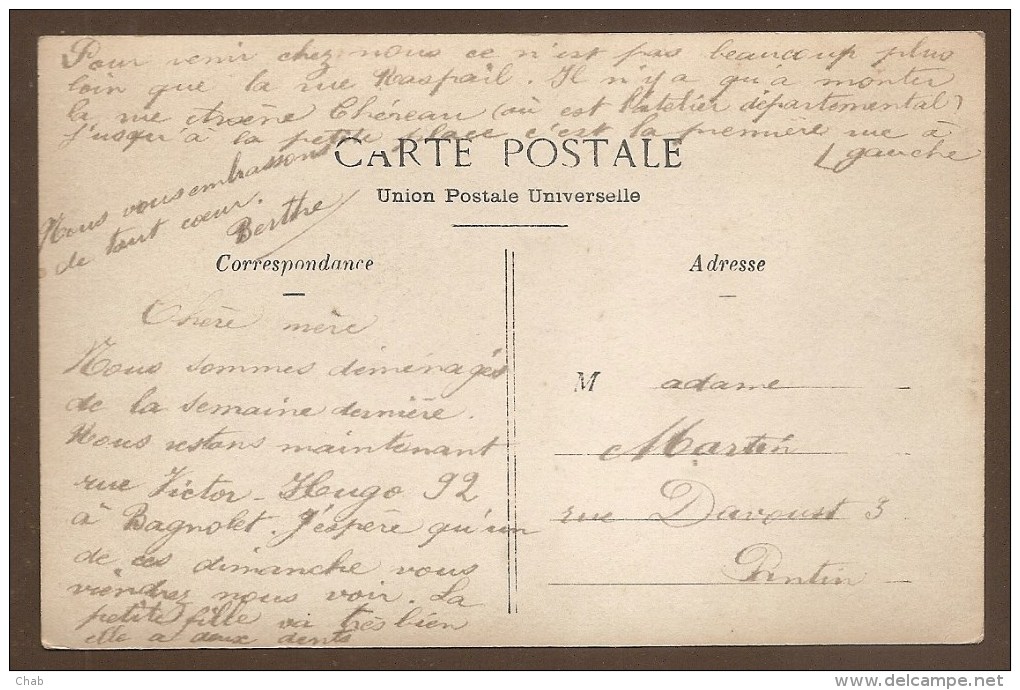 Pour venir chez nous ce n'est pas beaucoup plus
loin que la rue Raspail. Il n'y a qu'a monter
la rue Arsène Chéreau (où est l'atelier départemental)
jusqu'à la petite place c'est la première rue à
gauche
Nous vous embrassons
de tout coeur.
Berthe
CARTE POSTALE
Union Postale Universelle
Correspondance
Chère mère
Nous sommes déménagés
de la semaine dernière.
Nous restons maintenant
rue Victor-Hugo 92
à Bagnolet. J'espère qu'un
de ces dimanche vous
viendrez nous voir. La
petite fille va très bien
elle a deux dents
Adresse
M adame
Martin
rue Davoust 3
Pantin
Chab
www.delcampe.net